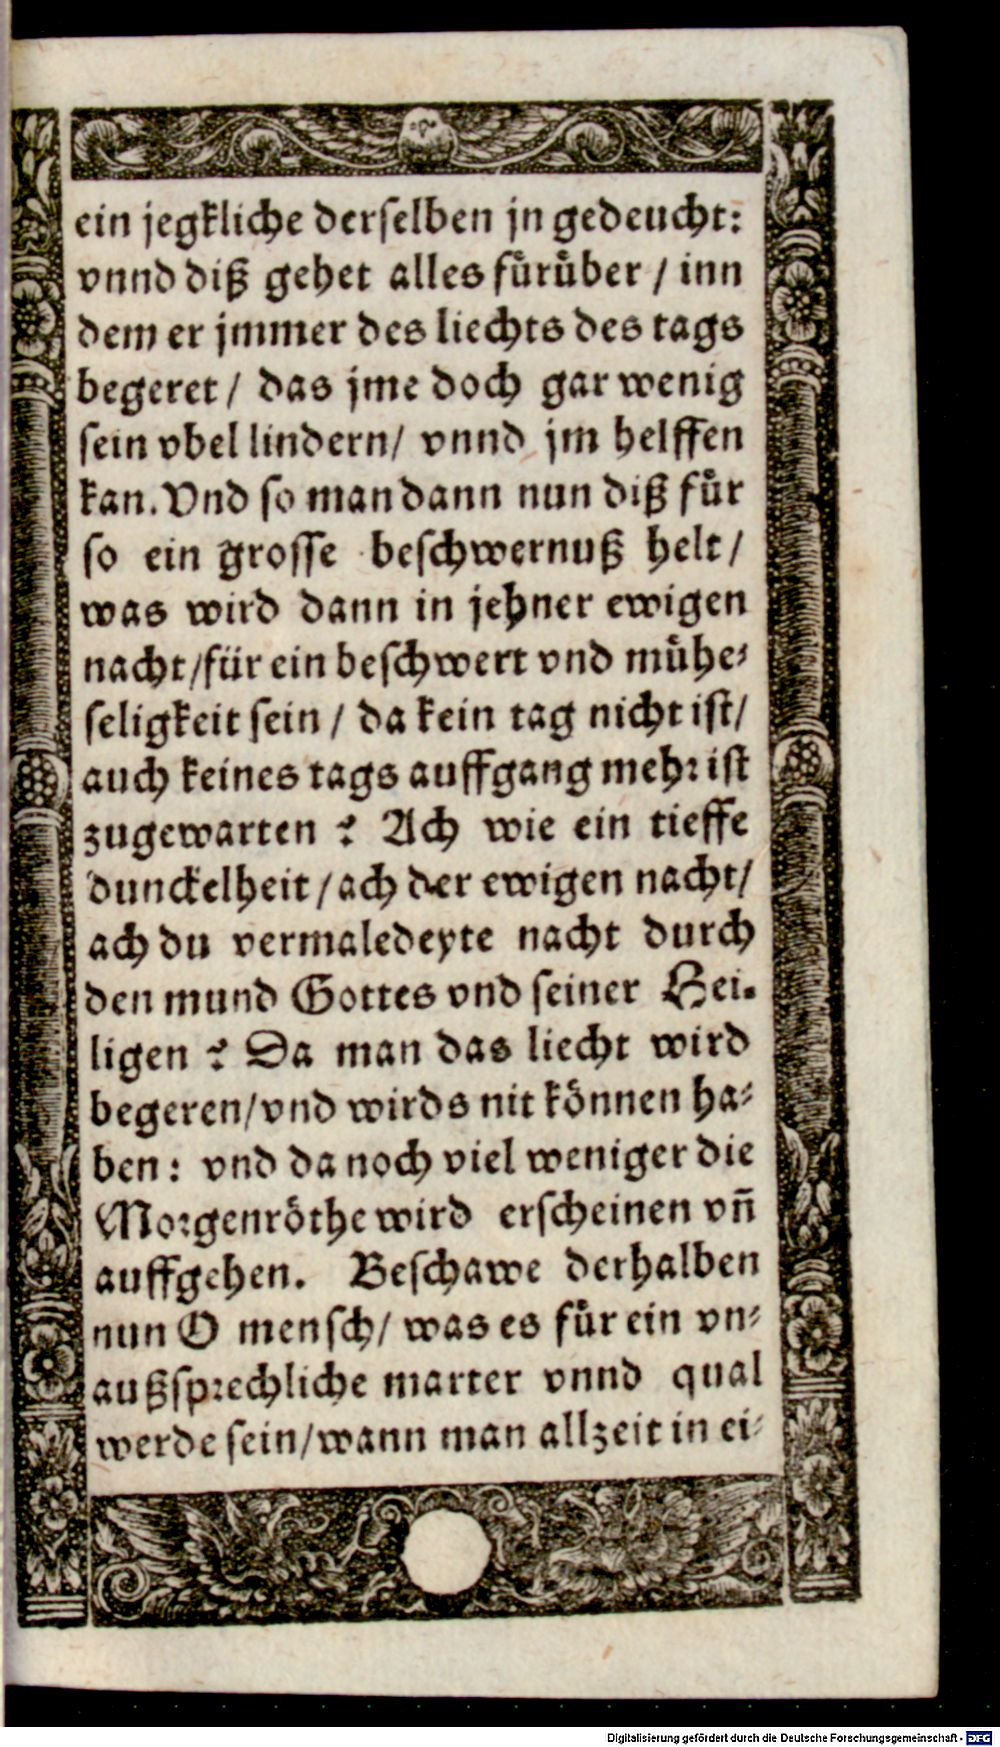 ein jegkliche derselben jn gedeucht:
vnnd diß gehet alles fuͤruͤber / inn
dem er jmmer des liechts des tags
begeret / das jme doch gar wenig
sein vbel lindern / vnnd jm helffen
kan. Vnd so man dann nun diß fuͤr
so ein grosse beschwernuß helt /
was wird dann in jehner ewigen
nacht / für ein beschwert vnd muͤhe-
seligkeit sein / da kein tag nicht ist /
auch keines tags auffgang mehr ist
zugewarten ? Ach wie ein tieffe
dunckelheit / ach der ewigen nacht /
ach du vermaledeyte nacht durch
den mund Gottes vnd seiner Hei-
ligen ? Da man das liecht wird
begeren / vnd wirds nit können ha-
ben : vnd da noch viel weniger die
Morgenröthe wird erscheinen vñ
auffgehen. Beschawe derhalben
nun O mensch / was es fuͤr ein vn-
außsprechliche marter vnnd qual
werde sein / wann man allzeit in ei-
Digitalisierung gefördert durch die Deutsche Forschungsgemeinschaft - DFG